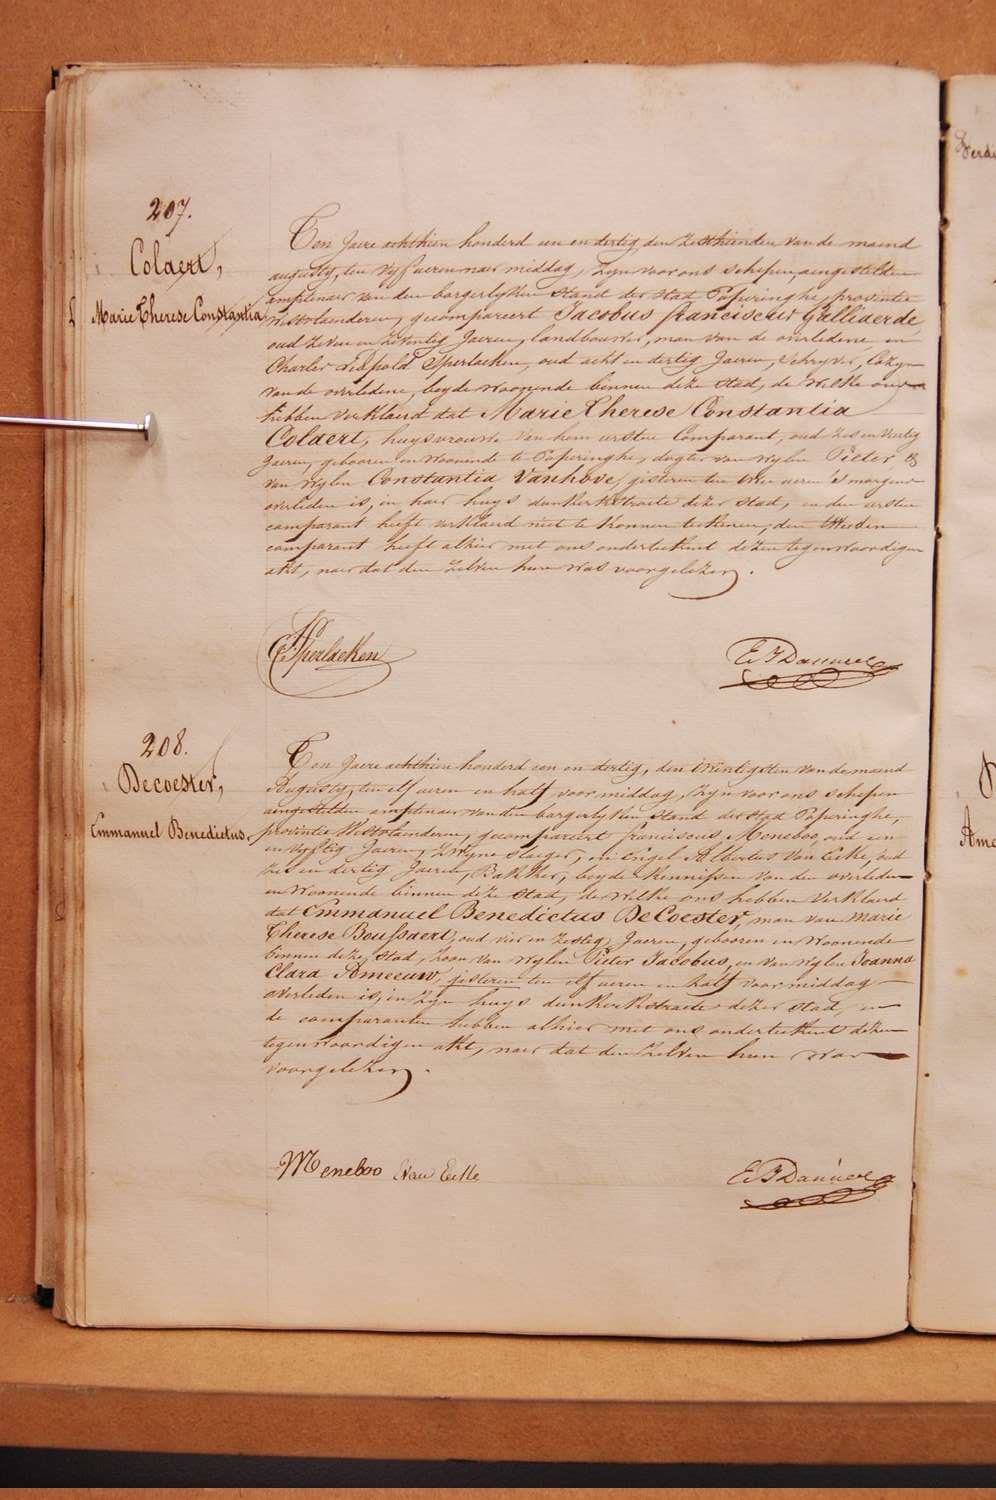 207.
Colaert,
Marie Therese Constantia
Ten Jaere achthien honderd een en dertig, den zesthienden van de maend
augusty, ten vyf ueren naer middag, zyn voor ons schepen, aengestelden
amptenaer van den borgerlyken stand der stad Poperinghe, provintie
Westvlaenderen, gecompareert Jacobus franciscus Galliaerde,
oud zeven en zeventig Jaeren, landbouwer, man van de overledene, en
Charles Leopold Sperlaeken, oud acht en dertig Jaeren, Schryver, Cozyn
van de overledene, beyde woonende binnen deze stad, de welke ons
hebben verklaerd dat Marie Therese Constantia
Colaert, huysvrouwe van hem eersten Comparant, oud zes en veertig
Jaeren, gebooren en woonende te Poperinghe, dogter van wylen Pieter &
van wylen Constantia Vanhove, gisteren ten twee ueren 's morgens
overleden is, in haer huys dunkerkstraete dezer stad, en den eersten
comparant heeft verklaerd niet te konnen teekenen, den tweeden
comparant heeft alhier met ons onderteekent dezen tegenwoordigen
akt, naer dat den zelven hun was voorgelezen.
Sperlaeken
208.
Decoester,
Emmanuel Benedictus,
Ten Jaere achthien honderd een en dertig, den twintigsten van de maend
Augusty, ten elf ueren en half voor middag, zyn voor ons schepen
aengestelden amptenaer van den borgerlyken stand der stad Poperinghe,
provintie Westvlaenderen, gecompareert franciscus Meneboo, oud een
en vyftig Jaeren, zwyne slaeger, en Engel Albertus Van Eecke, oud
zes en dertig Jaeren, Bakker, beyde kennissen van den overleden
en woonende binnen deze stad, de welke ons hebben verklaerd
dat Emmanuel Benedictus DeCoester, man van Marie
Therese Boussaert, oud vier en zestig Jaeren, gebooren en woonende
binnen deze stad, zoon van wylen Pieter Jacobus, en van wylen Joanna
Clara Ameeuw, gisteren ten elf ueren en half voor middag
overleden is, in zyn huys dunkerkstraete dezer stad, en
de comparanten hebben alhier met ons onderteekent dezen
tegenwoordigen akt, naer dat den zelven hun was
voorgelezen.
Meneboo Van Eecke